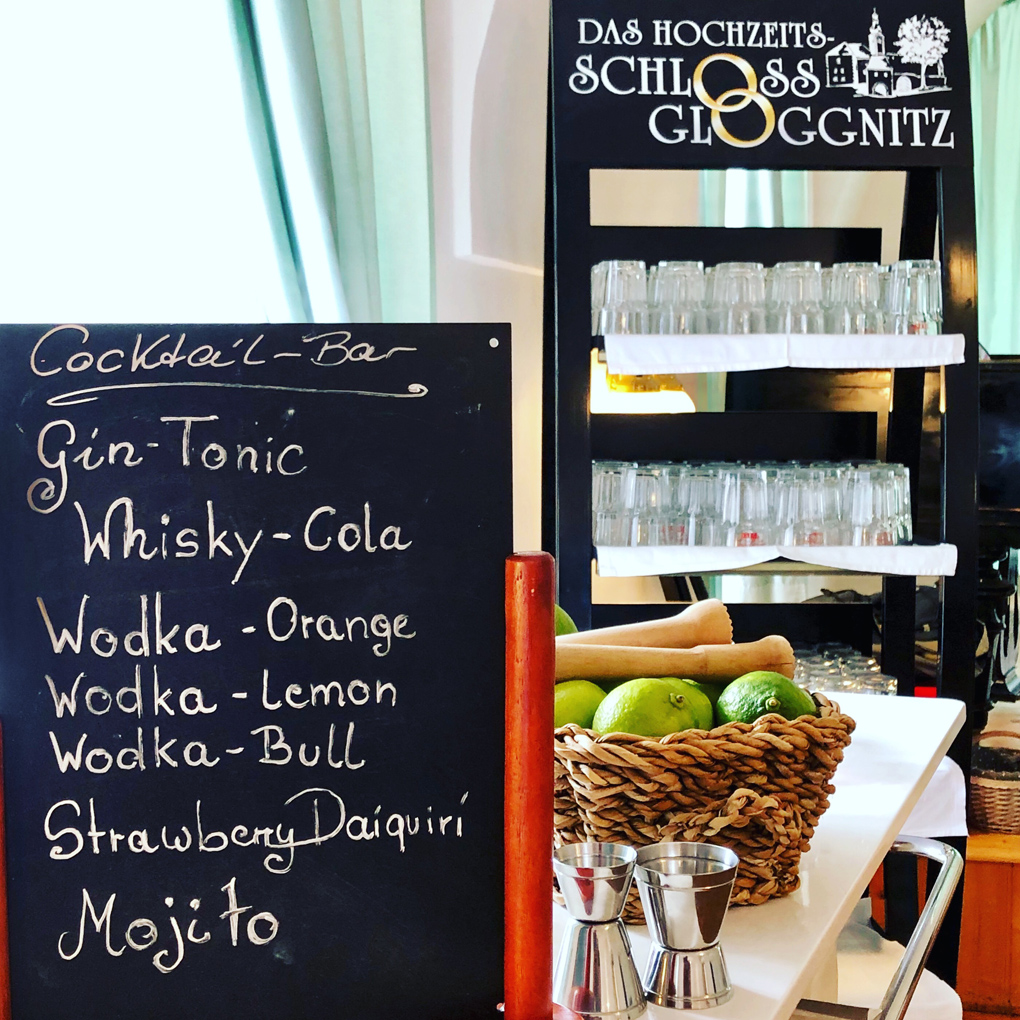 DAS HOCHZEITS-
SCHLOSS
GLOGGNITZ
Cocktail-Bar
Gin-Tonic
Whisky-Cola
Wodka-Orange
Wodka-Lemon
Wodka-Bull
Strawberry Daiquiri
Mojito